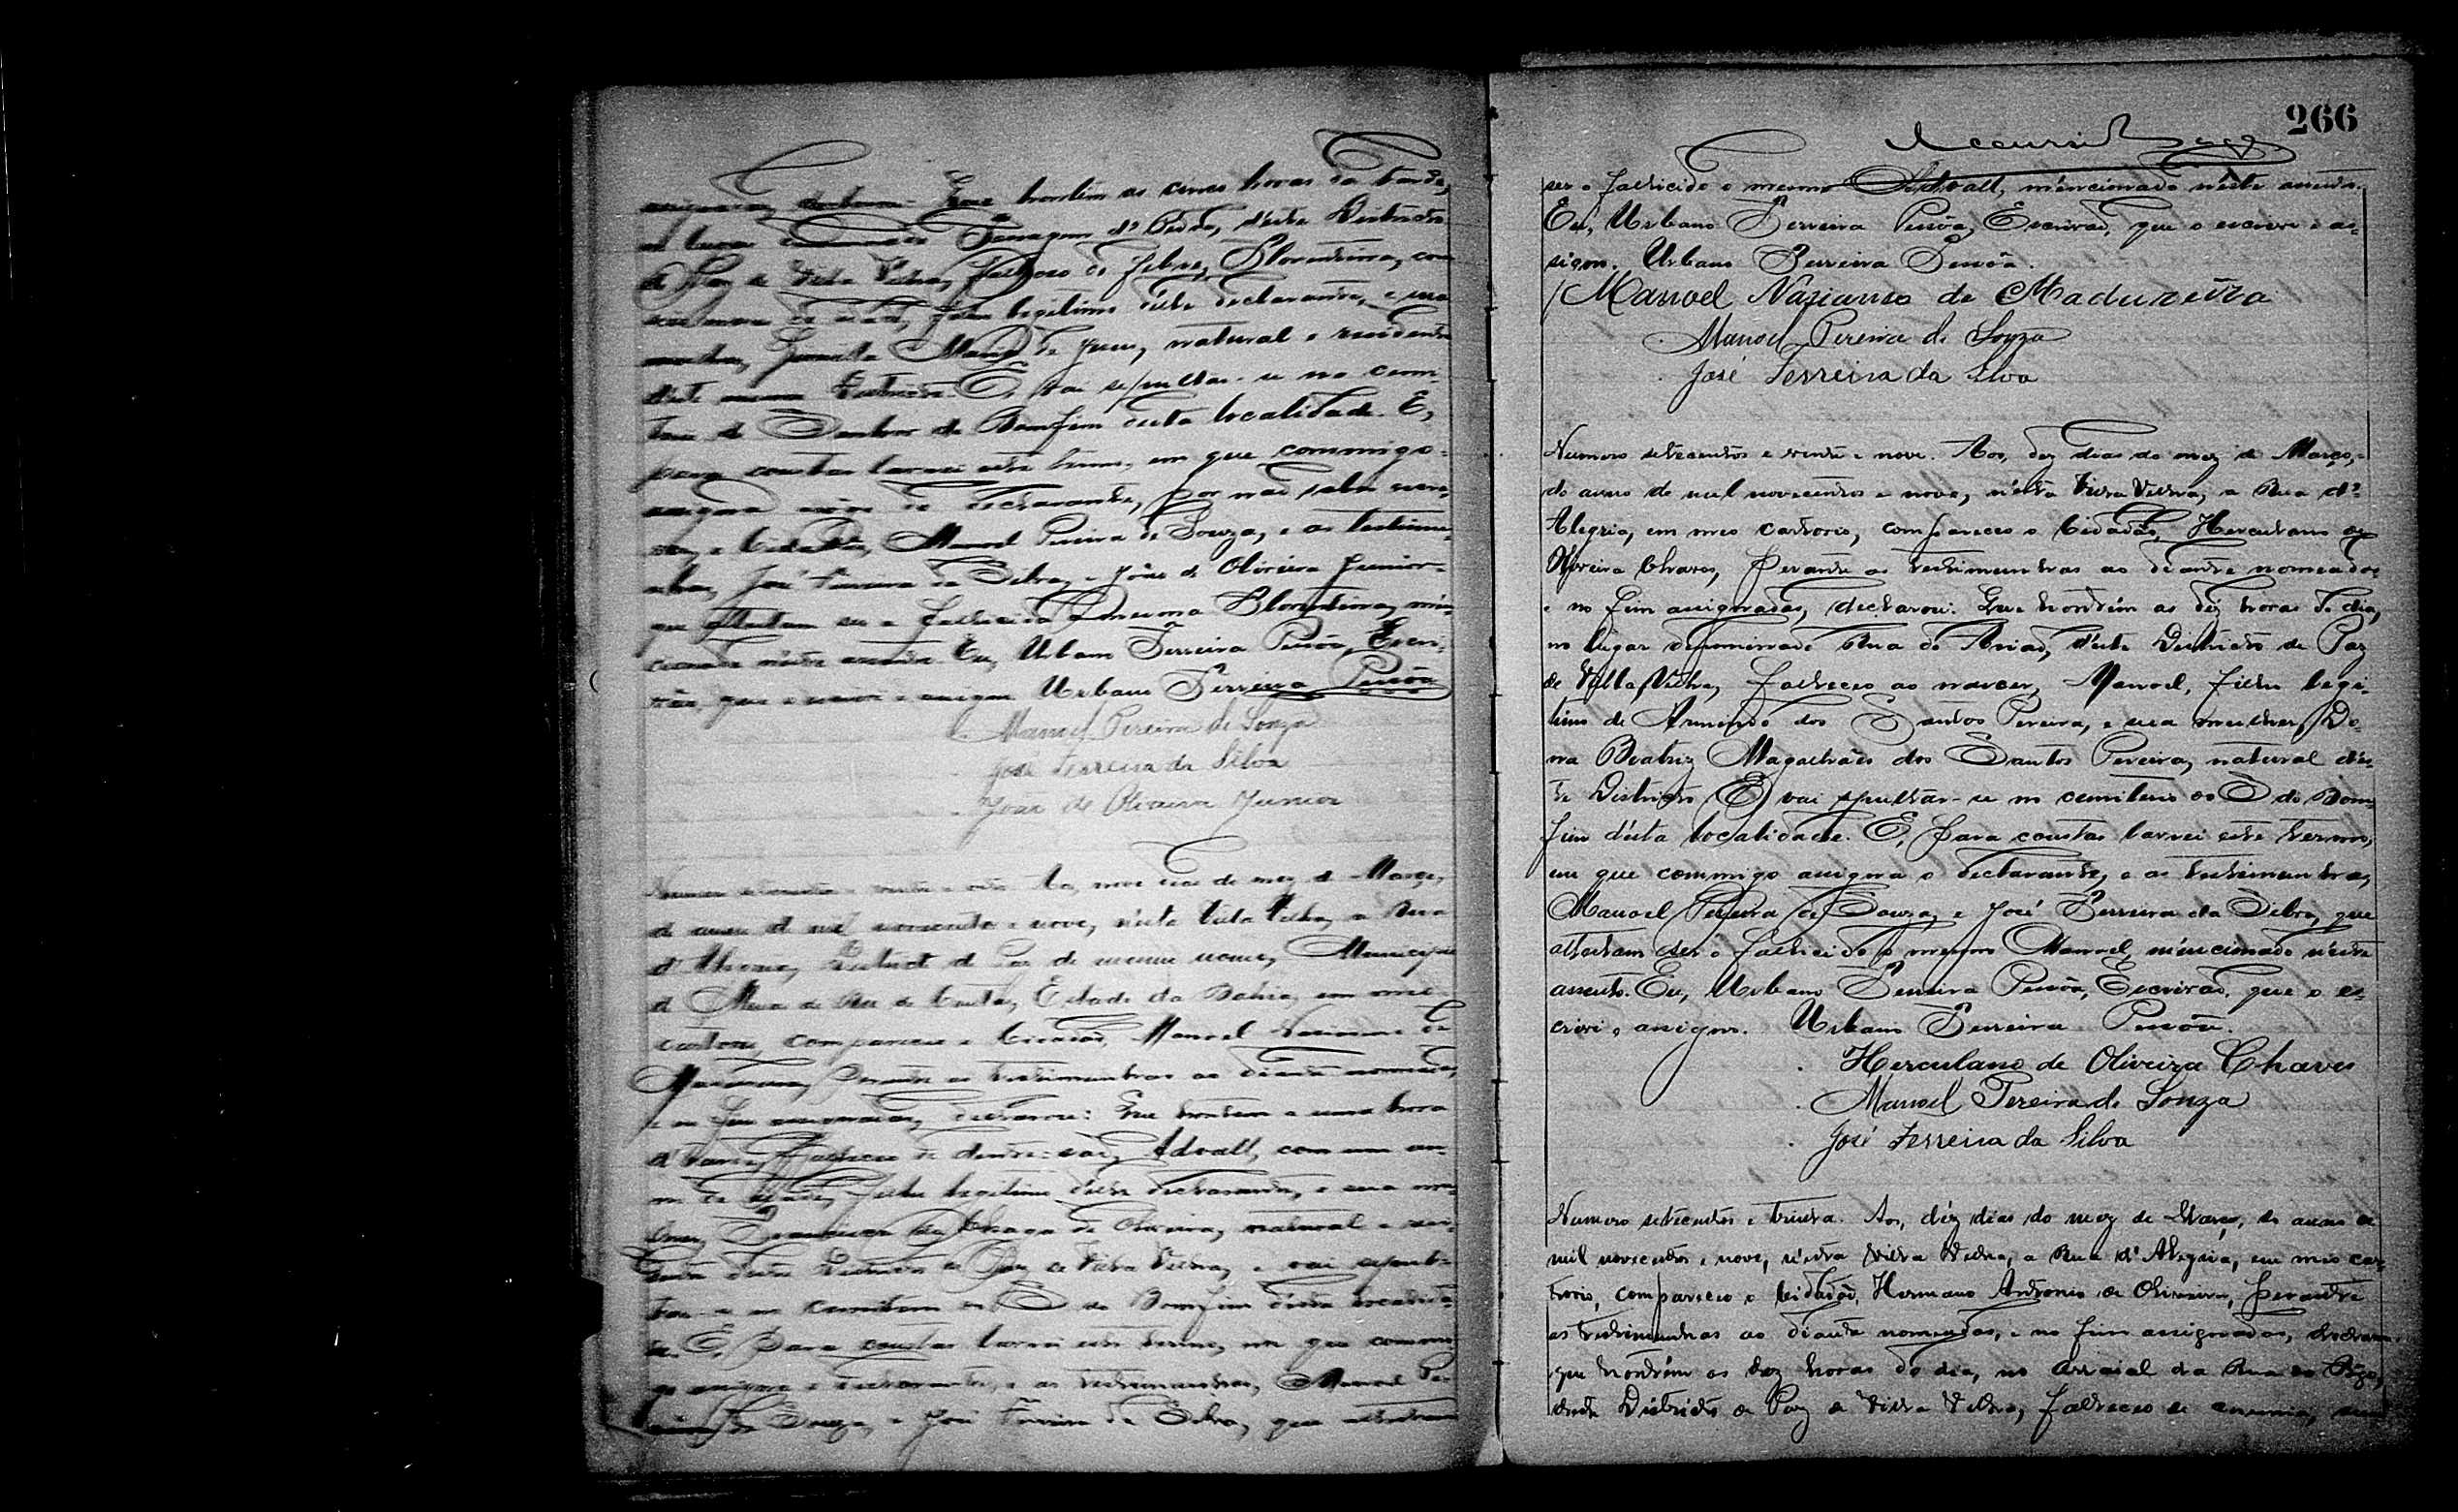 Que hontem as cinco horas da tarde,
no lugar denominado d'Pedra, d'este Districto
de Paz de Villa Velha, falleceo de febre, Florentina, com
de idade, filha legitima d'este declarante, e sua
mulher, Maria de Jesus, natural e residente
d'este mesmo Districto. E, vai sepultar-se no cemi-
terio do Senhor do Bomfim desta localidade. E,
para constar lavrei este termo, em que commigo
assigna do declarante, por não saber escre-
ver, o Cidadão, Manoel Pereira de Souza, e as testimu-
nhas, José Ferreira da Silva, e João de Oliveira Junior
que attestam ser a fallecida a mesma Florentina, men-
cionada n'este assento. Eu, Urbano Ferreira Pessôa, Escri-
vão, que o escrevi e assigno. Urbano Ferreira Pessôa
Manoel Pereira de Souza
José Ferreira da Silva
João de Oliveira Junior
Numero setecentos e vinte e oito. Aos, nove dias do mez de Março,
do anno de mil novecentos e nove, n'esta Villa Velha, a Rua
d'Alegria, Districto de Paz do mesmo nome, Municipio
de Minas do Rio de Contas, Estado da Bahia, em meo
cartorio, compareceo o Cidadão, Manoel Nazianso de
Madureira, perante as testimunhas ao diante nomeadas,
e no fim assignadas, declarou: Que hontem a uma hora
da tarde, falleceo de dentição, Advall, com um an-
no de idade, filho legitimo d'este declarante, e sua mu-
lher, de Oliveira, natural e resi-
dente d'este Districto de Paz de Villa Velha, e vai sepul-
tar-se no cemiterio do S. do Bomfim d'esta localida-
de. E, para constar lavrei este termo, em que commi-
go assigna o declarante, e as testimunhas, Manoel Pe-
reira de Souza, e José Ferreira da Silva, que attestam
266
ser o fallecido o mesmo Advall, mencionado n'este assento.
Eu, Urbano Ferreira Pessôa, Escrivão, que o escrevi e as-
signo. Urbano Ferreira Pessôa.
Manoel Nazianso de Madureira
Manoel Pereira de Souza
José Ferreira da Silva
Numero setecentos e vinte e nove. Aos, dez dias do mez de Março,
do anno de mil novecentos e nove, n'esta Villa Velha, a Rua d'
Alegria, em meo cartorio, compareceo o Cidadão, Herculano de
Oliveira Chaves, perante as testimunhas ao diante nomeadas
e no fim assignadas, declarou: Que hontem as dez horas do dia,
no lugar denominado Rua do , d'este Districto de Paz
de Villa Velha, falleceo ao nascer, Manoel, filho legi-
timo de dos Santos Pereira, e sua mulher, Do-
na Beatriz Magalhães dos Santos Pereira, natural d'es-
te Districto. E, vai sepultar-se no cemiterio do S. do Bom-
fim d'esta localidade. E, para constar lavrei este termo,
em que commigo assigna o declarante, e as testimunhas,
Manoel Pereira de Souza, e José Ferreira da Silva, que
attestam ser o fallecido o mesmo Manoel, mencionado n'este
assento. Eu, Urbano Ferreira Pessôa, Escrivão, que o es-
crevi e assigno. Urbano Ferreira Pessôa.
Herculano de Oliveira Chaves
Manoel Pereira de Souza
José Ferreira da Silva
Numero setecentos e trinta. Aos, dez dias do mez de Março, do anno de
mil novecentos e nove, n'esta Villa Velha, a Rua d'Alegria, em meo car-
torio, compareceo o Cidadão, Hermano Antonio de Oliveira, perante
as testimunhas ao diante nomeadas, e no fim assignadas, declarou
que hontem as dez horas do dia, no arraial da Rua do
deste Districto de Paz de Villa Velha, falleceo de anemia,